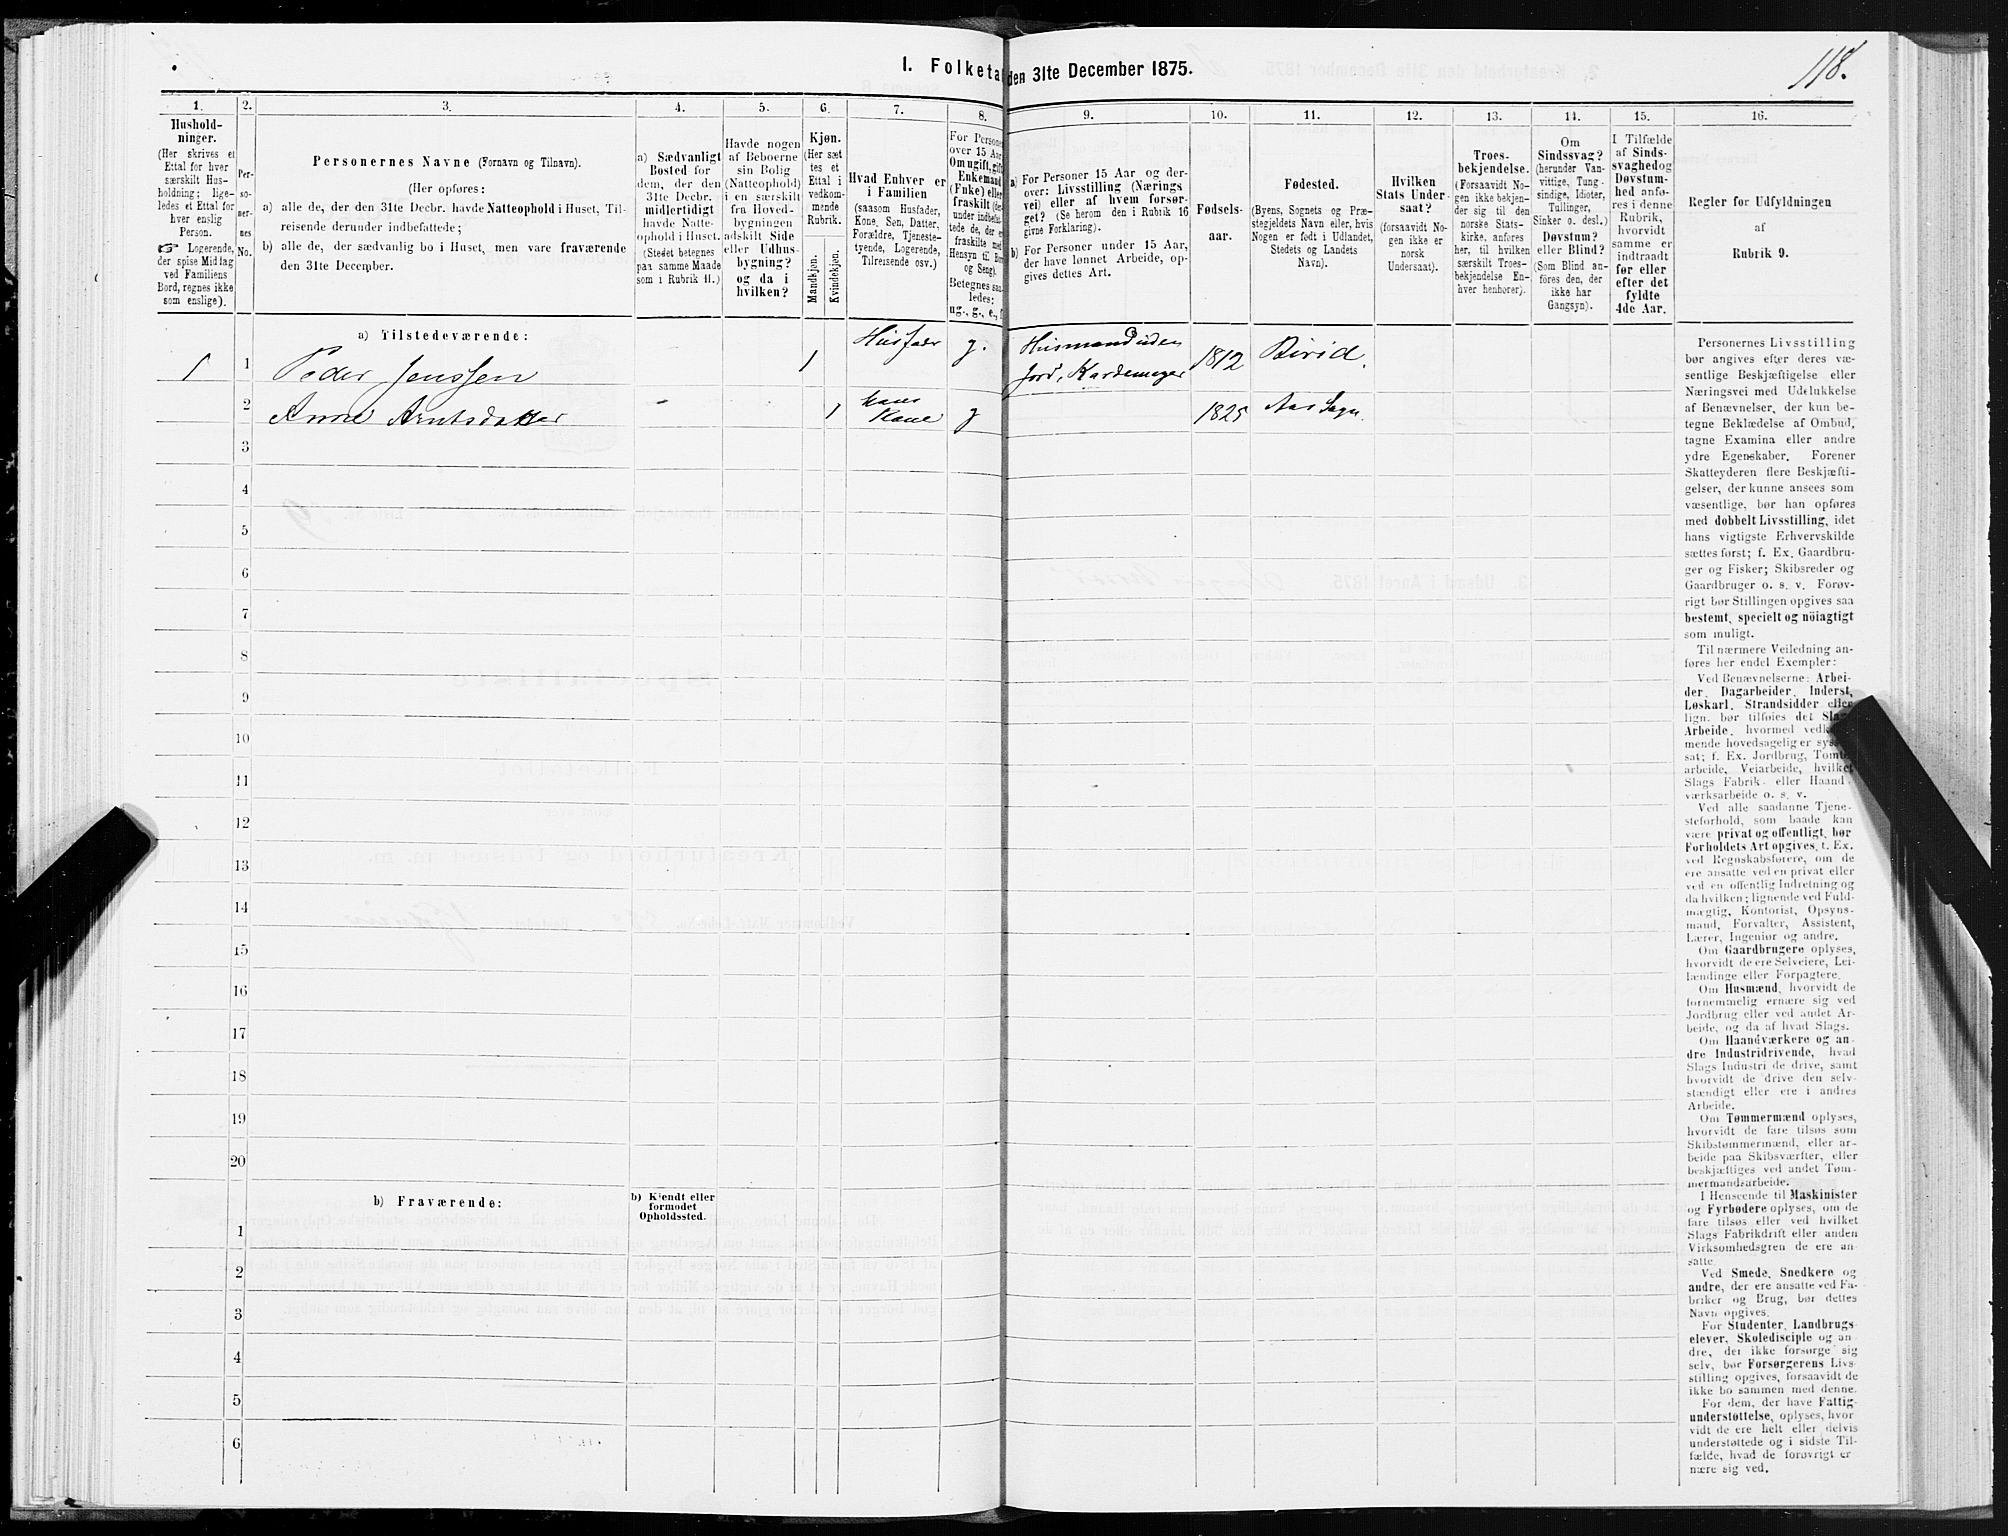 118.
I. Folketa den 31te December 1875.
1. 2. 3. 4. 5. 6. 7. 8. 9. 10. 11. 12. 13. 14. 15. 16.
Hushold-
ninger.
(Her skrives et
Ettal for hver
særskilt Hus-
holdning; lige-
ledes et Ettal for
hver enslig
Person.
☞ Logerende,
der spise Middag
ved Familiens
Bord, regnes ikke
som enslige).
Per-
so-
ner-
nes
No.
Personernes Navne (Fornavn og Tilnavn).
(Her opføres:
a) alle de, der den 31te Decbr. havde Natteophold i Huset, Til-
reisende derunder indbefattede;
b) alle de, der sædvanlig bo i Huset, men vare fraværende
den 31te December.
a) Sædvanligt
Bosted for
dem, der den
31te Decbr.
midlertidigt
havde Natte-
ophold i Huset.
(Stedet betegnes
paa samme Maade
som i Rubrik 11.)
Havde nogen
af Beboerne
sin Bolig
(Natteophold)
i en særskilt
fra Hoved-
bygningen
adskilt Side
eller Udhus-
bygning?
og da i
hvilken?
Kjøn.
(Her sæt
tes et
Ettal i
vedkom-
mende
Rubrik.
Mandkjøn.
Kvindekjøn.
Hvad Enhver er
i Familien
(saasom Husfader,
Kone, Søn, Datter,
Forældre, Tjeneste-
tyende, Logerende,
Tilreisende osv.)
For Persone
over 15 Aar
Om ugift, gift
Enkemand
(Enke) eller
fraskilt (der-
under indbefat-
tede de, der e
fraskilte med
Hensyn til Bor
og Seng).
Betegnes saa-
ledes:
ug., g., e., f
a) For Personer 15 Aar og der-
over: Livsstilling (Nærings
vei) eller af hvem forsør-
get? (Se herom den i Rubrik 16
givne Forklaring).
b) For Personer under 15 Aar,
der have lønnet Arbeide, op-
gives dettes Art.
Fødsels-
aar.
Fødested.
(Byens, Sognets og Præ-
stegjeldets Navn eller, hvis
Nogen er født i Udlandet,
Stedets og Landets
Navn).
Hvilken
Stats Under-
saat?
(forsaavidt No-
gen ikke er
norsk
Undersaat).
Troes-
bekjendelse.
(Forsaavidt No-
gen ikke bekjen-
der sig til den
norske Stats-
kirke, anføres
her, til hvilken
særskilt Troes-
bekjendelse En-
hver henhører).
Om
Sindssvag?
(herunder Van-
vittige, Tung-
sindige, Idioter,
Tullinger,
Sinker o. desl.)
Døvstum?
eller Blind?
(Som Blind an-
føres den, der
ikke har
Gangsyn).
I Tilfælde
af Sinds-
svaghed og
Døvstum-
hed anfø-
res i denne
Rubrik,
hvorvidt
samme er
indtraadt
før eller
efter det
fyldte
4de Aar.
Regler for Udfyldningen
af
Rubrik 9.
a) Tilstedeværende:
1 1 Peder Jenssen 1 Husfader g. Husmand uden
Jord, Kardemager 1812 Birid.
2 Anne Arntsdatter 1 hans
Kone g 1825 Aas Sogn.
3
4
5
6
7
8
9
10
11
12
13
14
15
16
17
18
19
20
b) Fraværende:
b) Kjendt eller
formodet
Opholdssted.
1
2
3
4
5
6
Personernes Livsstilling
bør angives efter deres væ-
sentlige Beskjæftigelse eller
Næringsvei med Udelukkelse
af Benævnelser, der kun be-
tegne Beklædelse af Ombud,
tagne Examina eller andre
ydre Egenskaber. Forener
Skatteyderen flere Beskjæfti-
gelser, der kunne ansees som
væsentlige, bør han opføres
med dobbelt Livsstilling, idet
hans vigtigste Erhvervskilde
sættes først; f. Ex. Gaardbru-
ger og Fisker; Skibsreder og
Gaardbruger o. s. v. Forøv-
rigt bør Stillingen opgives saa
bestemt, specielt og nöiagtigt
som muligt.
Til nærmere Veiledning an-
føres her endel Exempler:
Ved Benævnelserne: Arbei-
der, Dagarbeider, Inderst,
Løskarl, Strandsidder eller
lign. bør tilføies det Slags
Arbeide, hvormed vedkom-
mende hovedsagelig er syssel-
sat; f. Ex. Jordbrug, Tomte-
arbeide, Veiarbeide, hvilket
Slags Fabrik- eller Haand-
værksarbeide o. s. v.
Ved alle saadanne Tjene-
steforhold, som baade kan
være privat og offentligt, bør
Forholdets Art opgives, t. Ex.
ved Regnskabsførere, om de
ere ansatte ved en privat eller
ved en offentlig Indretning og
da hvilken; lignende ved Fuld-
mægtig, Kontorist, Opsyns-
mand, Forvalter, Assistent,
Lærer, Ingeniør og andre.
Om Gaardbrugere oplyses,
hvorvidt de ere Selveiere, Lei-
lændinge eller Forpagtere.
Om Husmænd, hvorvidt de
fornemmelig ernære sig ved
Jordbrug eller ved andet Ar-
beide, og da af hvad Slags.
Om Haandværkere og an-
dre Industridrivende, hvad
Slags Industri de drive, samt
hvorvidt de drive den selv-
stændigt eller ere i andres
Arbeide.
Om Tømmermænd oplyses,
hvorvidt de fare tilsøs som
Skibstømmermænd, eller ar-
beide paa Skibsværfter, eller
beskjæftiges ved andet Tøm-
mermandsarbeide.
I Henseende til Maskinister
og Fyrbødere oplyses, om de
fare tilsøs eller ved hvilket
Slags Fabrikdrift eller anden
Virksomhedsgren de ere an-
satte.
Ved Smede, Snedkere og
andre, der ere ansatte ved Fa-
briker og Brug, bør dettes
Navn opgives.
For Studenter, Landbrugs-
elever, Skoledisciple og an-
dre, der ikke forsørge sig
selv, bør Forsørgerens Livs-
stilling opgives, forsaavidt de
ikke bo sammen med denne.
For dem, der have Fattig-
understøttelse, oplyses, hvor-
vidt de ere helt eller delvis
understøttede og i sidste Til-
fælde, hvad de forøvrigt er-
nære sig ved.